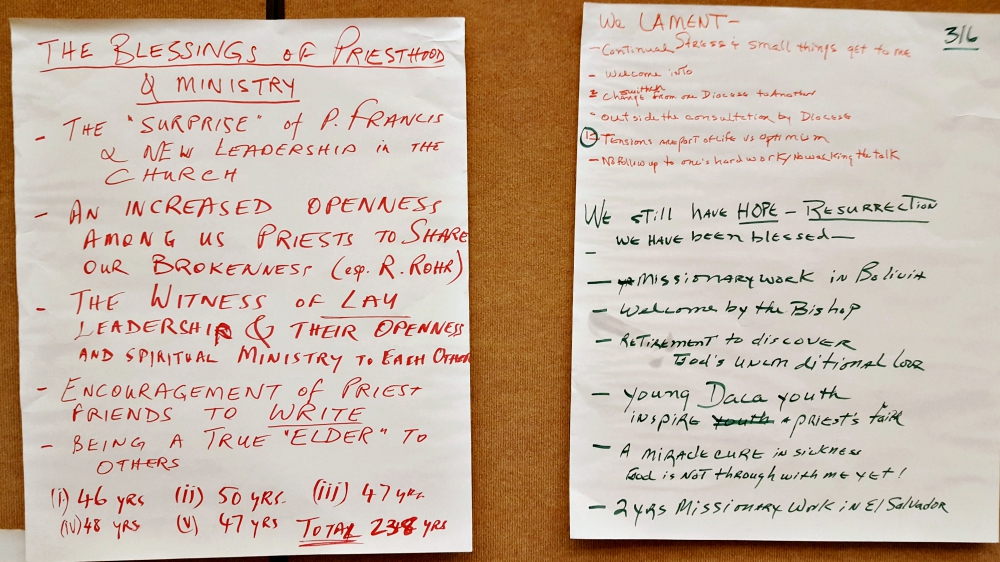 THE BLESSINGS OF PRIESTHOOD
& MINISTRY
- THE "SURPRISE" of P. FRANCIS
& NEW LEADERSHIP in THE
CHURCH
- AN INCREASED OPENNESS
AMONG US PRIESTS TO SHARE
OUR BROKENNESS (esp. R. ROHR)
- THE WITNESS OF LAY
LEADERSHIP & THEIR OPENNESS
AND SPIRITUAL MINISTRY TO EACH OTHER
- ENCOURAGEMENT OF PRIEST
FRIENDS TO WRITE
- BEING A TRUE "ELDER" TO
OTHERS
(i) 46 yrs (ii) 50 yrs. (iii) 47 yrs.
(iv) 48 yrs (v) 47 yrs TOTAL 238 yrs
We LAMENT -
316
- Continual Stress & small things get to me
- Welcome into
Change from one Diocese to Another
- outside the consultation by Diocese
Tensions of Life vs optimum
- No follow up to one's hard work/No walking the talk
We still have HOPE - RESURRECTION
we have been blessed -
-
- Missionary work in Bolivia
- Welcome by the Bishop
- RETIREMENT to discover
God's unconditional Love
- young Daca youth
inspire youth a priest's faith
- A miracle cure in sickness
God is not through with me yet!
- 2 yrs Missionary Work in El Salvador